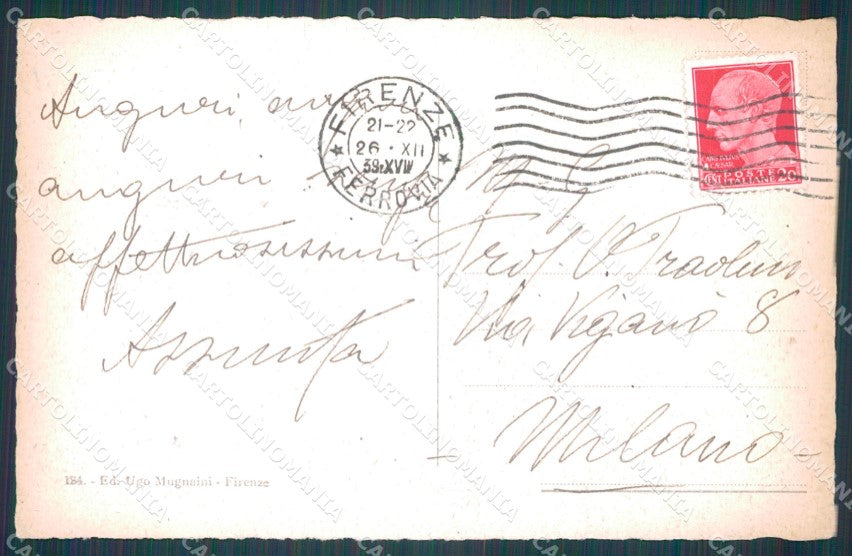 Auguri,
auguri
affettuosissimi
Assunta
FIRENZE
21-22
26 · XII
39 XVIII
FERROVIA
CESARE
POSTE
ITALIANE 20
CENT
Prof.
Via Viganò 8
Milano
184. - Ed. Ugo Mugnaini - Firenze
CARTOLINOMANIA